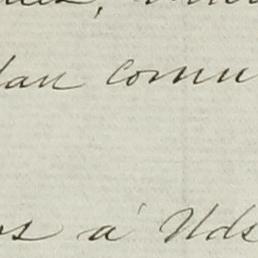 dan comu
os á Uds